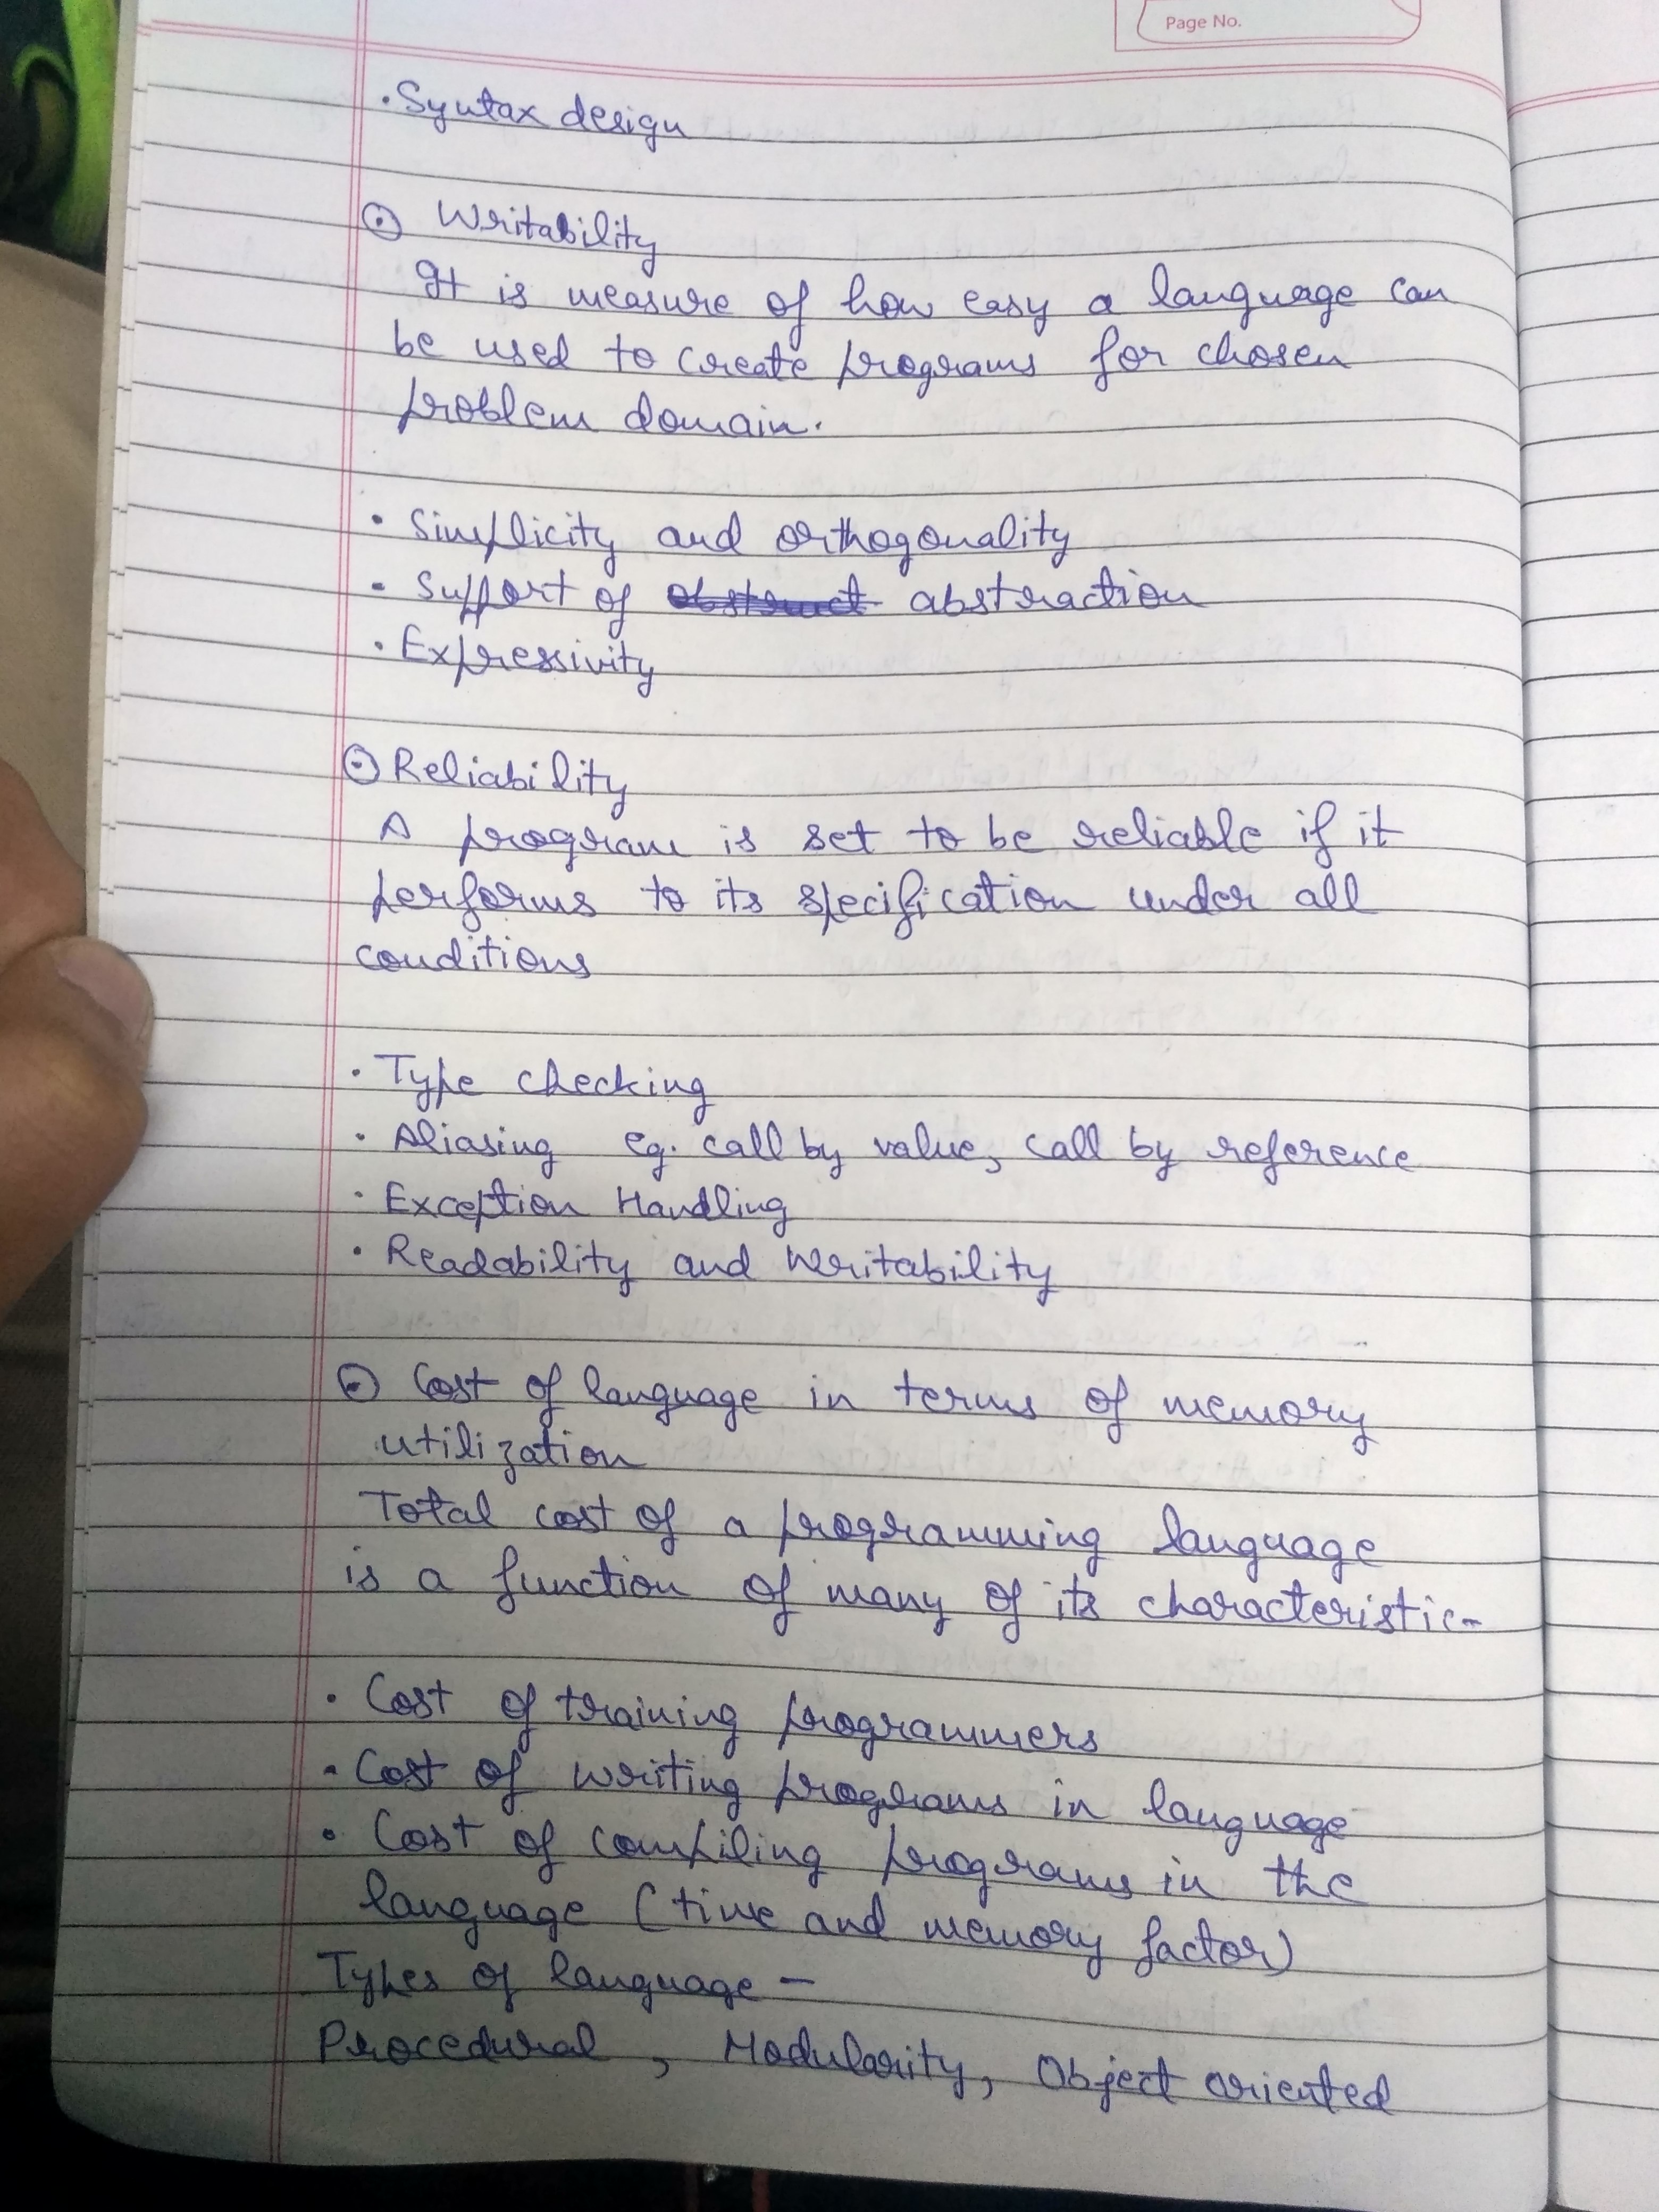 Page No.
• Syntax design
⊙ Writability
It is measure of how easy a language can
be used to create programs for chosen
problem domain.
• Simplicity and orthogonality
• Support of abstract abstraction
• Expressivity
⊙ Reliability
A program is set to be reliable if it
performs to its specification under all
conditions
• Type checking
• Aliasing eg. call by value, call by reference
• Exception Handling
• Readability and Writability
⊙ Cost of language in terms of memory
utilization
Total cost of a programming language
is a function of many of its characteristic-
• Cost of training programmers
• Cost of writing programs in language
• Cost of compiling programs in the
language (time and memory factor)
Types of language -
Procedural, Modularity, Object oriented